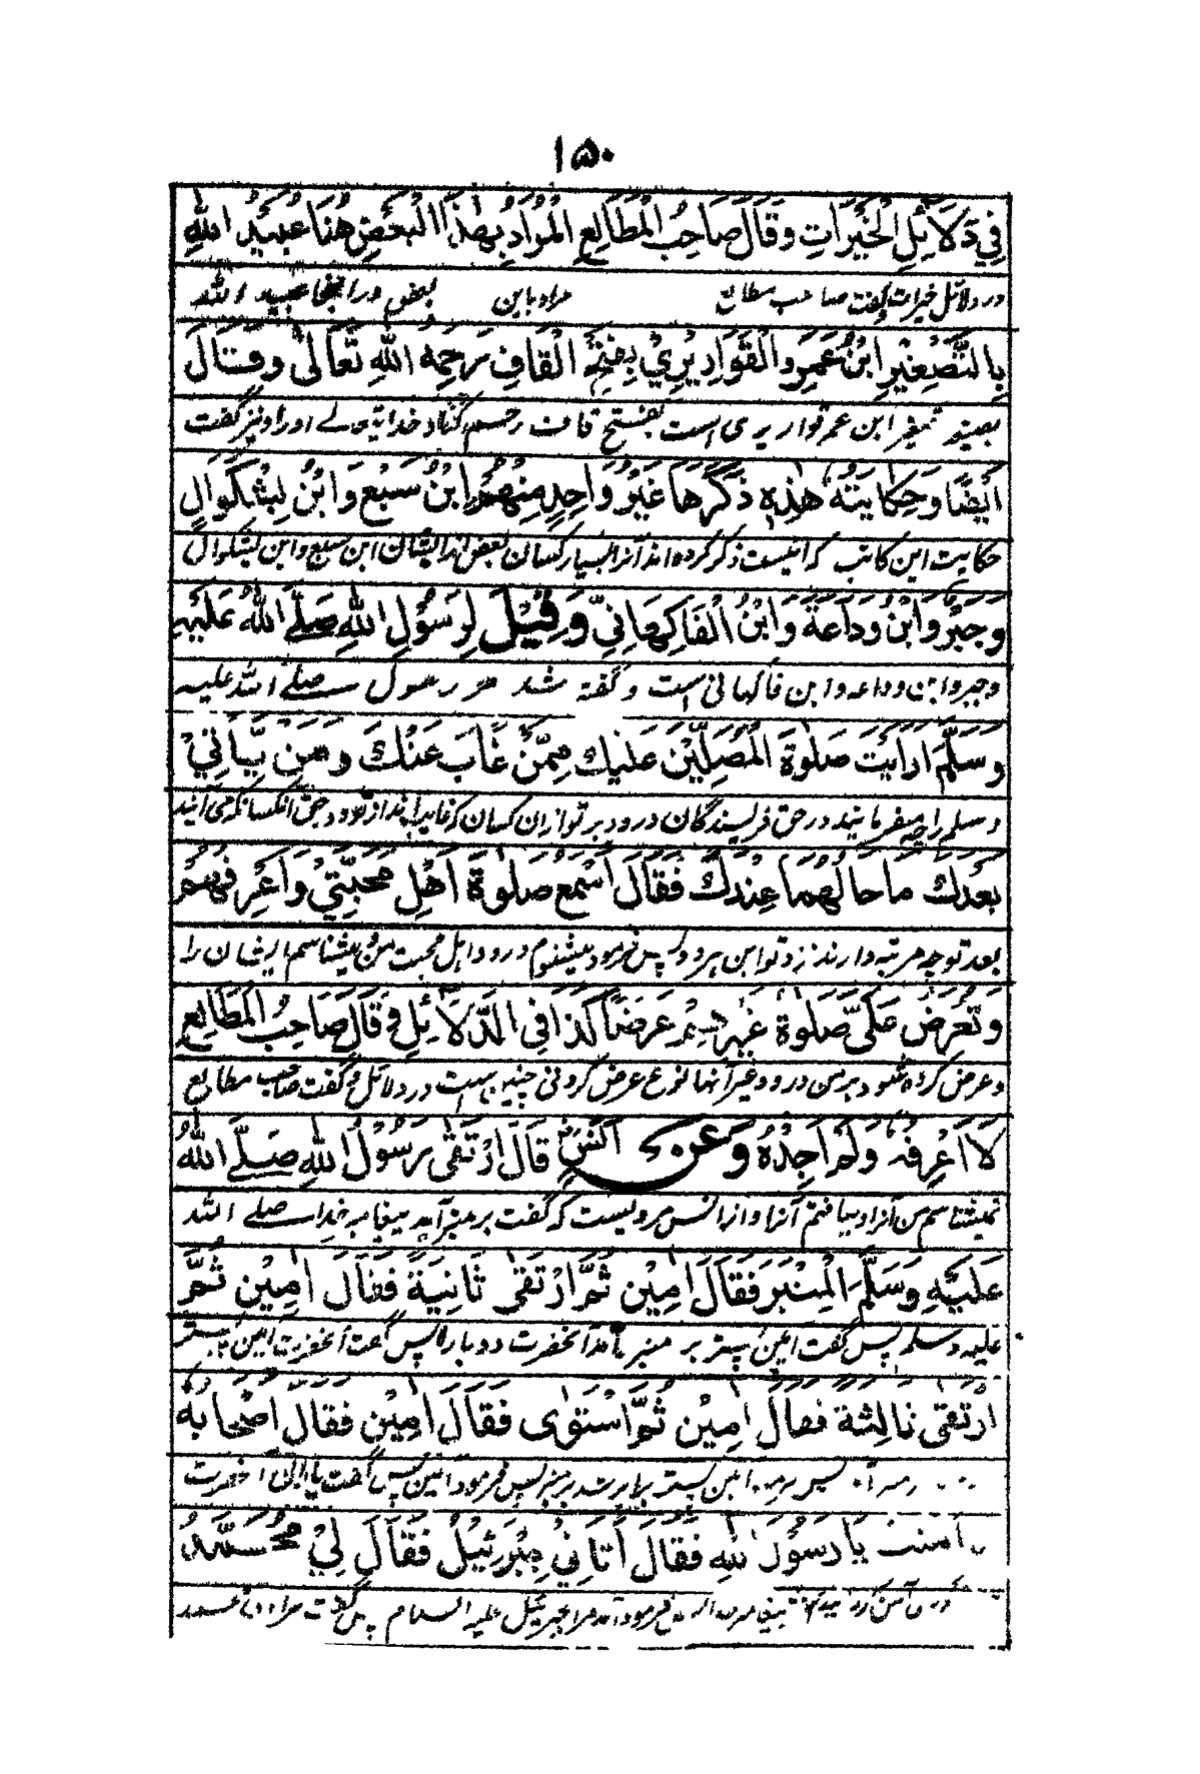 ۱۵۰
فِي دَلَائِلِ الْخَيْرَاتِ وَقَالَ صَاحِبُ الْمَطَالِعِ الْمُرَادُ بِهٰذَا الْبَعْضِ هُنَا عُبَيْدُ اللهِ
در دلائل خیرات گفت صاحب مطالع مراد باین بعض در اینجا عبید الله
بِالتَّصْغِيْرِ ابْنُ عُمَرَ وَالْقَوَارِيْرِيُّ بِفَتْحِ الْقَافِ رَحِمَهُ اللهُ تَعَالٰى وَقَالَ
بصیغه تصغیر ابن عمر قواریری است بفتح قاف رحمت کناد خدایتعالے اورا و نیز گفت
اَيْضًا وَحِكَايَتُهُ هٰذِهِ ذَكَرَهَا غَيْرُ وَاحِدٍ مِنْهُمُ ابْنُ سَبْعٍ وَابْنُ بِشْكُوَالٍ
حکایت این کاتب که اینست ذکر کرده اند آنرا بسیار کسان بعض از ایشان ابن سبع و ابن بشکوال
وَجَبْرُ وَابْنُ وَدَاعَةَ وَابْنُ الْفَاكِهَانِيِّ وَقِيْلَ لِرَسُوْلِ اللهِ صَلَّے اللهُ عَلَيْهِ
و جبر و ابن وداعه و ابن فاکهانی است و گفته شد مر رسول صلے الله علیه
وَسَلَّمَ اَرَاَيْتَ صَلٰوةَ الْمُصَلِّيْنَ عَلَيْكَ مِمَّنْ غَابَ عَنْكَ وَمَنْ يَّاْتِيْ
وسلم را چه میفرمائید در حق فرستندگان درود بر تو ازان کسان که غایب اند از تو و در حق آنکسانکه می آیند
بَعْدَكَ مَا حَالُهُمَا عِنْدَكَ فَقَالَ اَسْمَعُ صَلٰوةَ اَهْلِ مَحَبَّتِيْ وَاَعْرِفُهُمْ
بعد تو چه مرتبه دارند نزد تو این هر دو پس فرمود میشنوم درود اهل محبت من و میشناسم ایشان را
وَتُعْرَضُ عَلَيَّ صَلٰوةُ غَيْرِهِمْ عَرْضًا كَذَا فِي الدَّلَائِلِ وَقَالَ صَاحِبُ الْمَطَالِعِ
و عرض کرده شود بر من درود غیر آنها نوع عرض کردنی چنین است در دلائل و گفت صاحب مطالع
لَا اَعْرِفُهُ وَلَمْ اَجِدْهُ وَعَنْ اَنَسٍ قَالَ ارْتَقٰى رَسُوْلُ اللهِ صَلَّے اللهُ
نمیشناسم من آنرا و نیافتم آنرا و از انس مرویست که گفت بر منبر آمد پیغامبر خدا صلے الله
عَلَيْهِ وَسَلَّمَ الْمِنْبَرَ فَقَالَ اٰمِيْن ثُمَّ ارْتَقٰى ثَانِيَةً فَقَالَ اٰمِيْن ثُمَّ
علیه وسلم پس گفت آمین پستر بر منبر بآمد آنحضرت دوباره پس گفت آنحضرت آمین پستر
ارْتَقٰى ثَالِثَةً فَقَالَ اٰمِيْن ثُمَّ اسْتَوٰى فَقَالَ اٰمِيْن فَقَالَ اَصْحَابُهُ
آمین پستر برابر شد بر منبر پس فرمود آمین پس گفت یاران آنحضرت
اٰمنت يَا رَسُوْلَ اللهِ فَقَالَ اَتَانِيْ جِبْرَئِيْلُ فَقَالَ لِيْ مُحَمَّدُ
فرمود آمد مرا جبرئیل علیه السلام پس گفت مرا